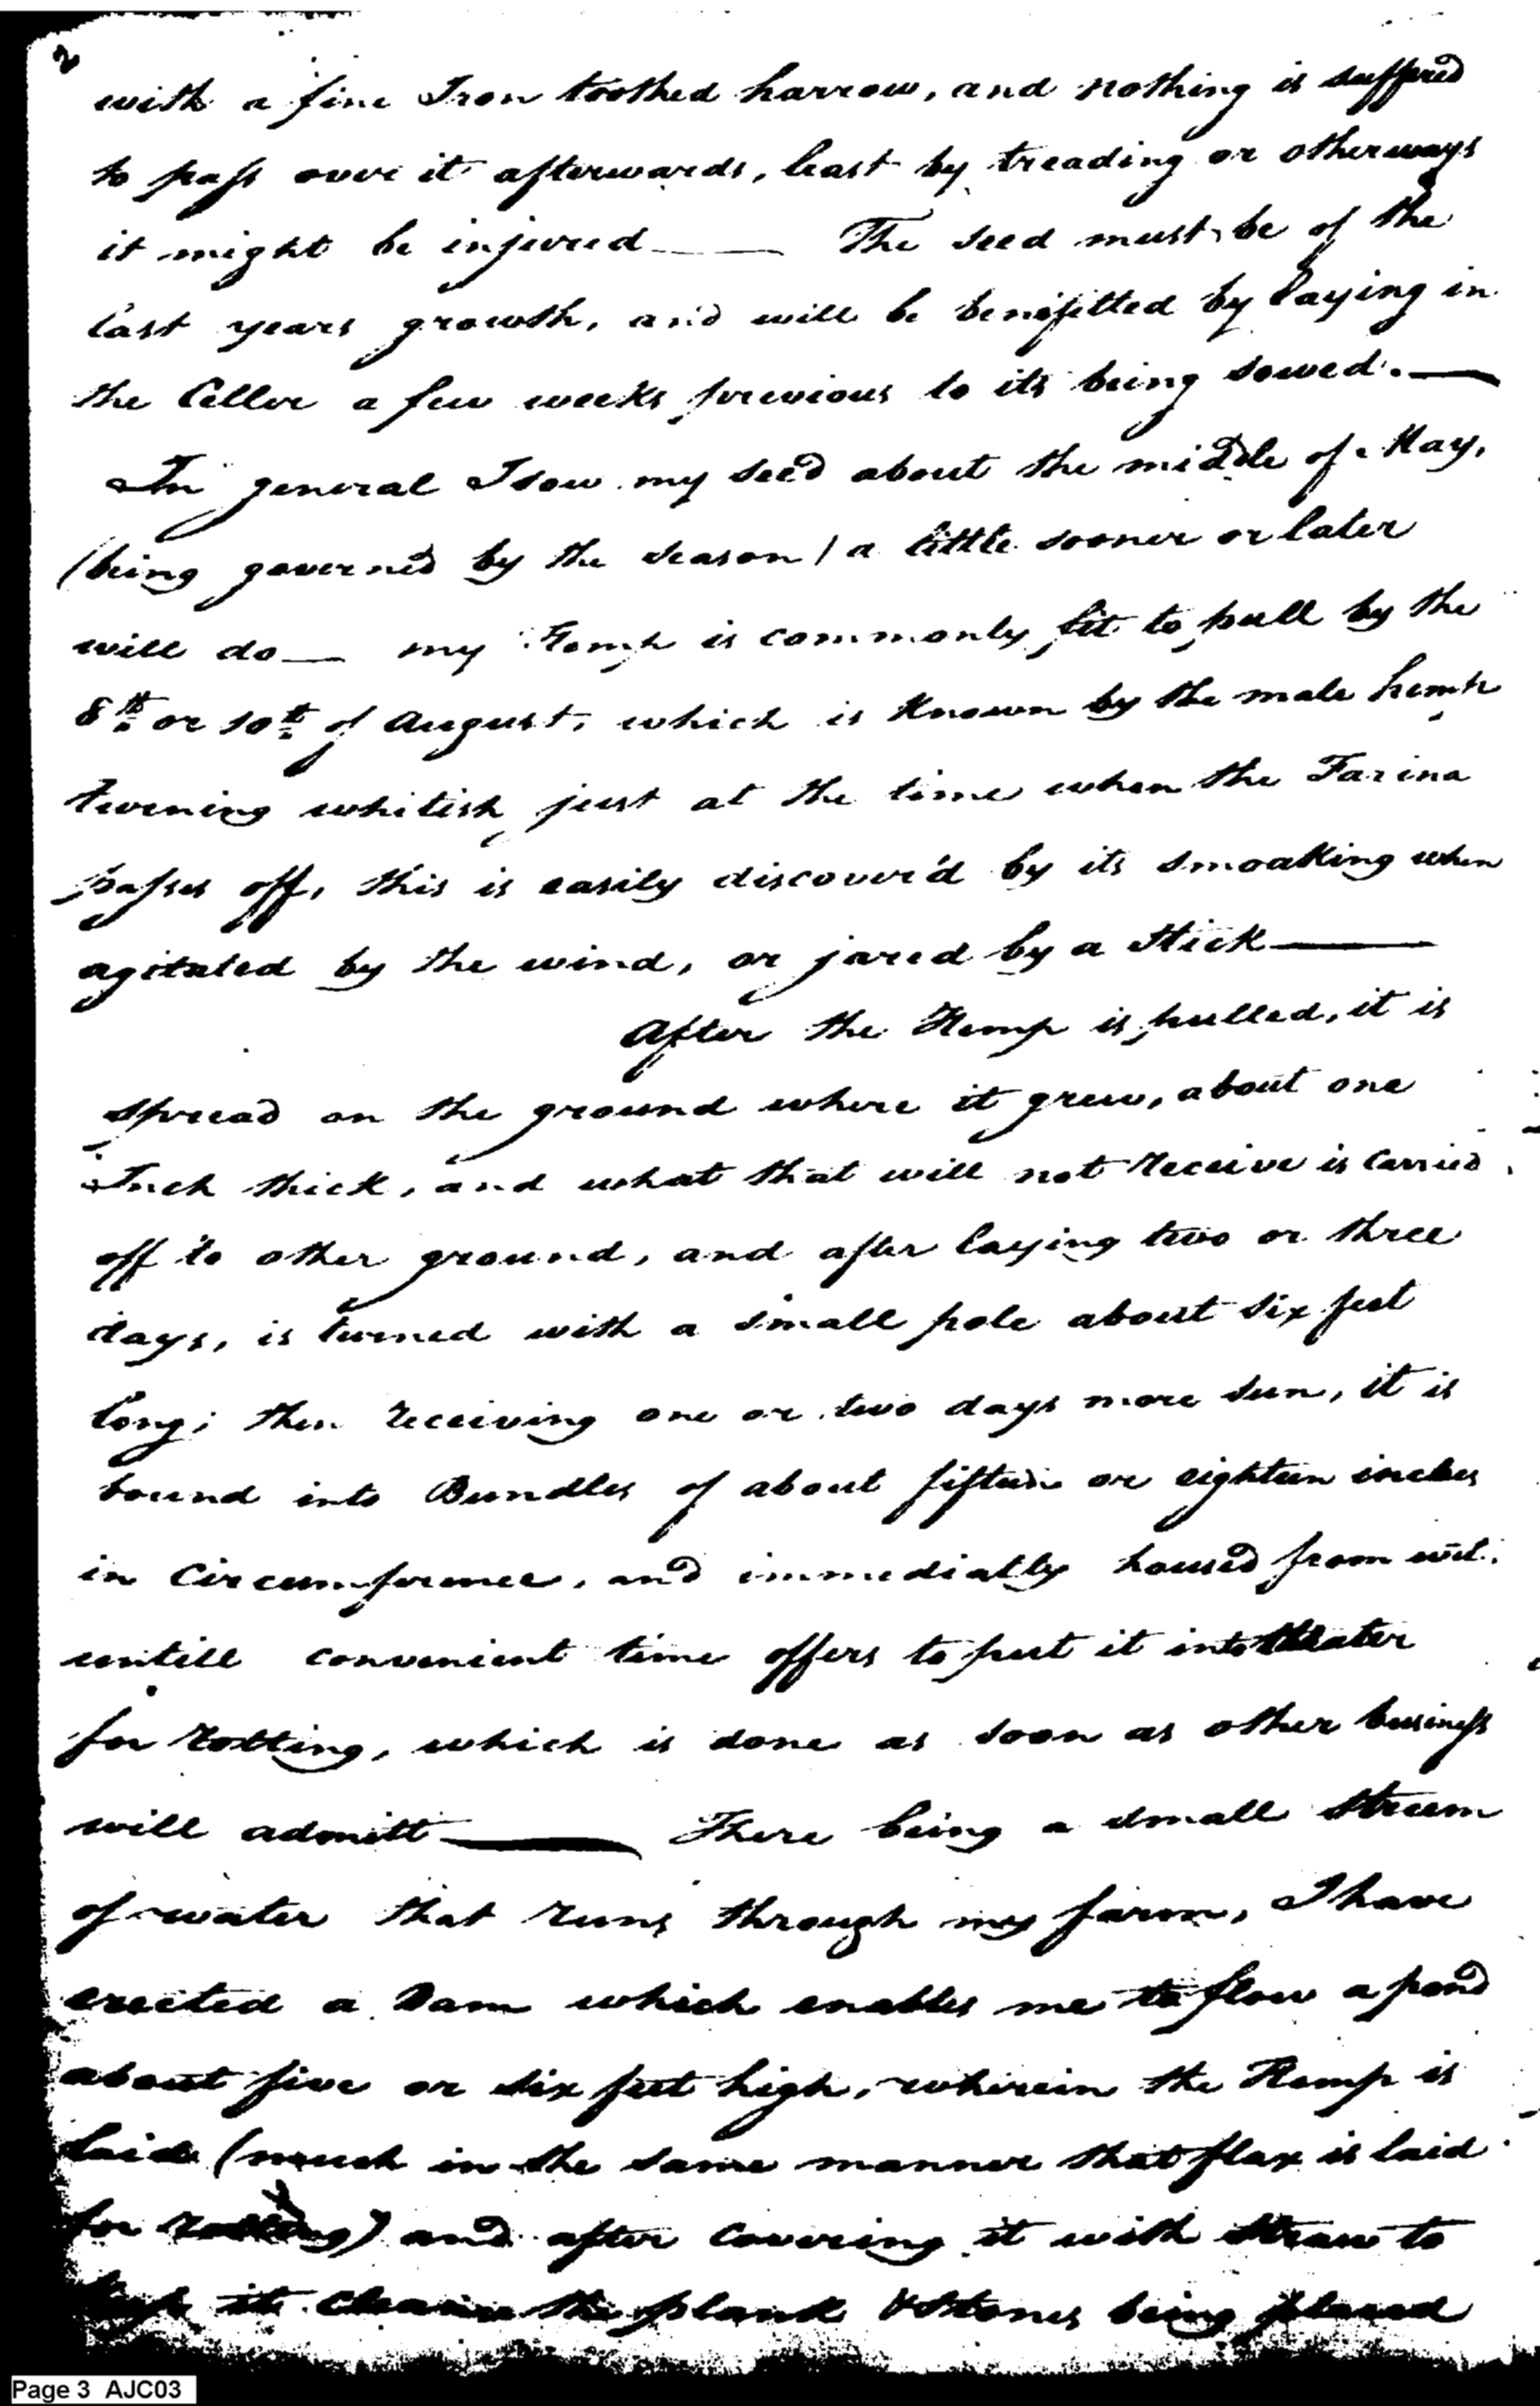 2
with a fine Iron toothed harrow, and nothing is suffered
to pass over it afterwards, least by treading or otherways
it might be injured — The seed must be of the
last years growth, and will be benifitted by laying in
the Celler a few weeks previous to its being sowed. —
In general I sow my seed about the middle of May,
(being governed by the season) a little sooner or later
will do — my Hemp is commonly fit to pull by the
8th or 10th of August, which is known by the male hemp
turning whitish just at the time when the Farina
passes off, this is easily discover'd by its smoaking when
agitated by the wind, or jared by a stick —
After the Hemp is pulled, it is
spread on the ground where it grew, about one
Inch thick, and what that will not receive is carried
off to other ground, and after laying two or three
days, is turned with a small pole about six feet
long; then receiving one or two days more sun, it is
bound into Bundles of about fifteen or eighteen inches
in Circumference, and immediatly housed from wet.
untill convenient time offers to put it into Water
for rotting, which is done as soon as other business
will admitt — There being a small stream
of water that runs through my farm, I have
erected a Dam which enables me to flow a pond
about five or six feet high, wherein the Hemp is
laid (much in the same manner that flax is laid
for rotting) and after covering it with straw to
keep it clean the plank & stones being placed
Page 3 AJC03